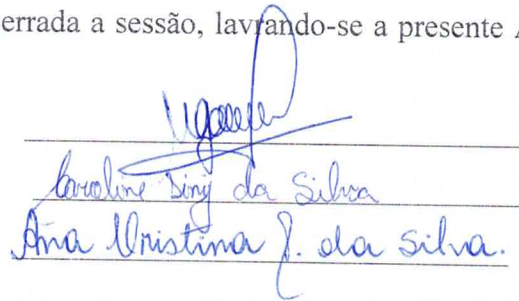 errada a sessão, lavrando-se a presente A
Caroline Diniz da Silva
Ana Cristina J. da Silva.